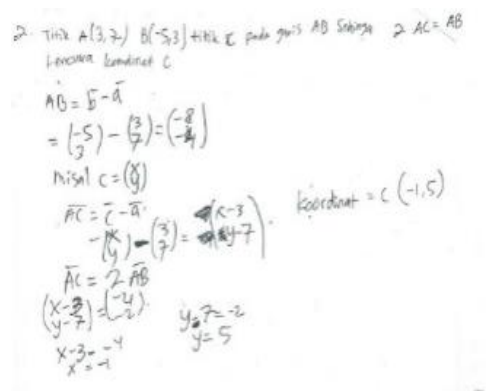 2. Titik A(3,7) B(-5,3) titik C pada garis AB Sehingga 2 AC = AB
koordinat C
AB = b̅ - a̅
= (-5 3) - (3 7) = (-8 -4)
Misal C = (x y)
A̅C̅ = c̅ - a̅
- (x y) - (3 7) = (x-3 y-7)
koordinat = C (-1,5)
A̅C̅ = 2 A̅B̅
(x-3 y-7) = (-4 -2)
y-7=-2
x-3=-4
y=5
x=-1